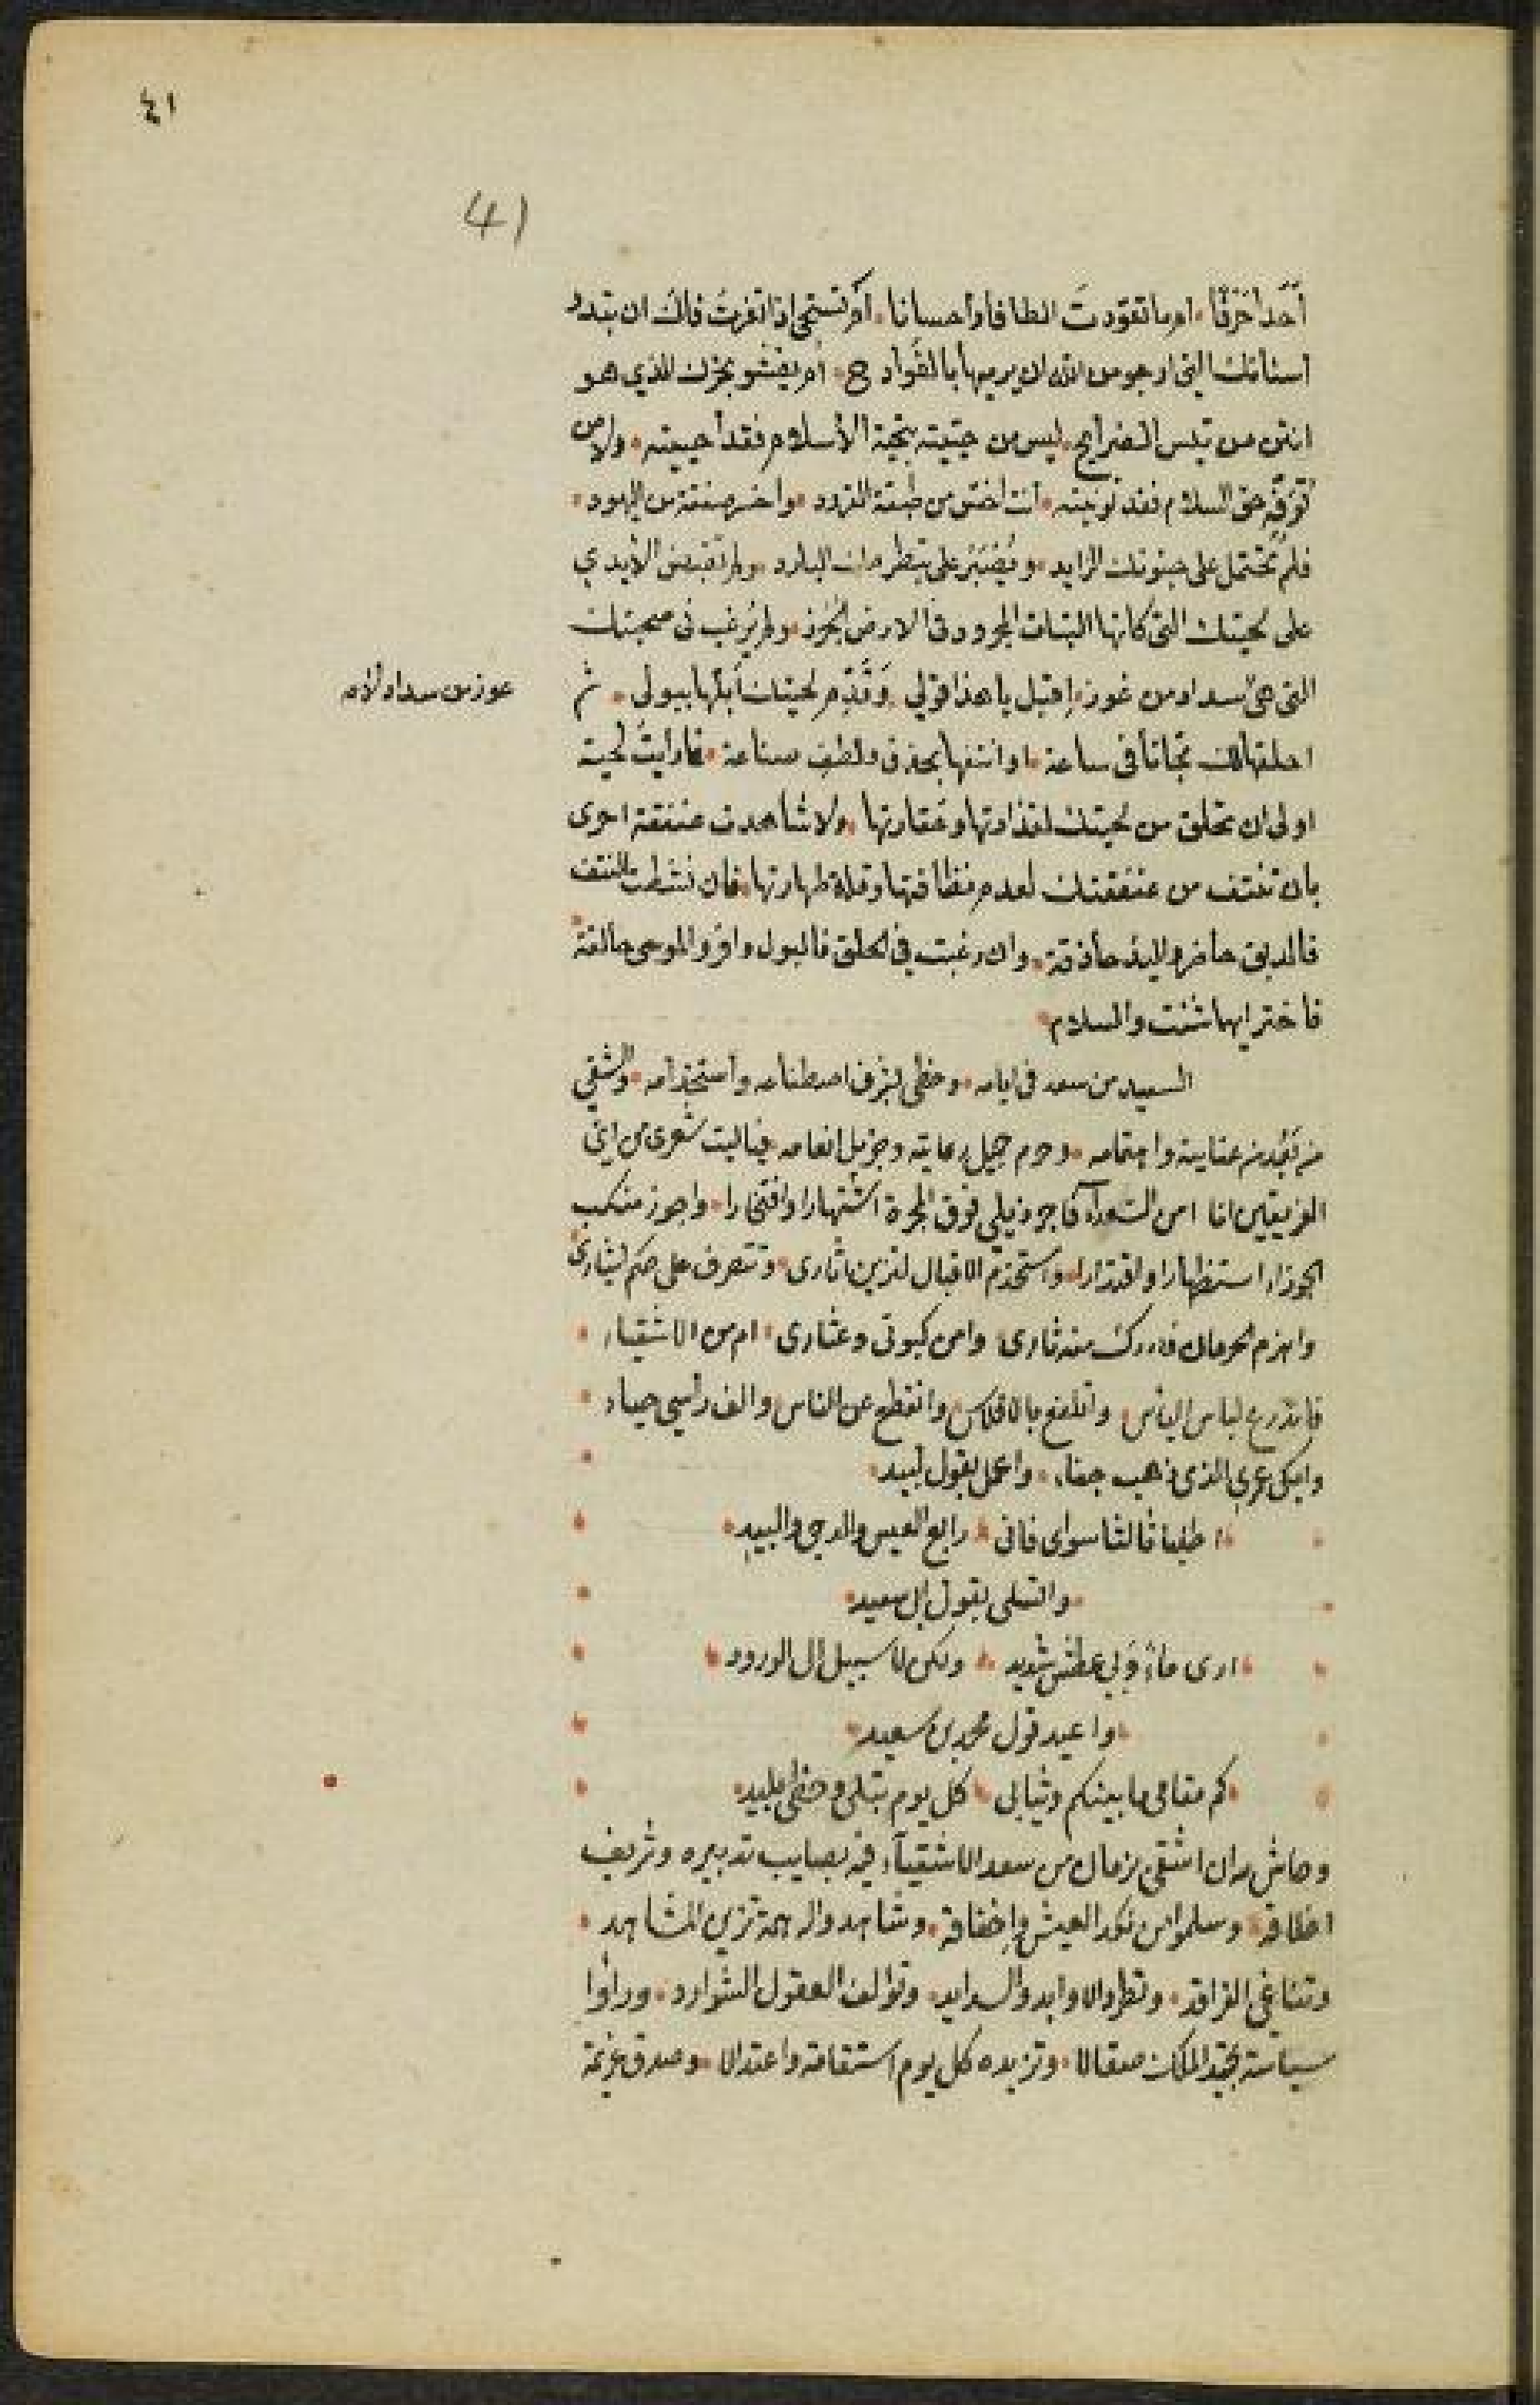 ٤١
41
أحداً خرقا اوما تعودت الطافا واحسانا ام تستحى اذا تغرث فاك ان تبدد
اسنانك التى ارجو من الله ان يرميها بالقوادح ام يفشو بخرك الذي هو
انتن من تيس ليس من حييته بتحية الأسلام فقد أحييته ولا من
توفه حق السلام فقد انت اخس من طبقة القرود واخسر صفقة من اليهود
فلم تحتمل على جنونك الزايد ويصبر على البارد ولم تقبض الأيدي
على لحيتك التى كأنها النبات المجرود فى الارض الجرز ولم يرغب فى صحبتك
التى هى سداد من عوز إقبل يا هذا قولي وقدم لحيتك أبلها ببولى ثم
عوز من سداد لأنه
احلقها لك مجانا فى ساعة او انتفها بحذق ولطف صناعة فما رايت لحية
اولى ان تحلق من لحيتك لقذارتها وحقارتها ولا شاهدت عنفقة احرى
بان تنتف من عنفقتك لعدم نظافتها وقلة طهارتها فان نشطت للنتف
فالدبق حاضر واليد حاذقة وان رغبت فى الحلق فالبول وافر والموسى حالقة
فاختر ايهما شئت والسلام
السعيد من سعد فى ايامه وحظى بشرف اصطناعه واستخدامه والشقي
من بعد من عنايته واهتمامه وحرم جميل رعايته وجزيل انعامه فياليت شعرى من اى
الفريقين انا امن السعدآ فاجر ذيلى فوق المجرة اشتهارا وافتخارا واجوز منكب
الجوزاء استظهارا واقتدارا واستخدم الاقبال لتزين اثارى وتتصرف على حكم ايثارى
واهزم الحرمان فادركت منه ثارى وامن كبوتى وعثارى ام من الاشقياء
فاتدرع لباس الياس واتلفع بالافلاس وانقطع عن الناس والف رأسي حياء
وابكى عمري الذى ذهب جفاء واعمل بقول لبيد
اطلبا ثالثا سواى فانى رابع العيس والدجى والبيد
واتسلى بقول ابى سعيد
ارى ماءً وبي عطش شديد ولكن لا سبيل الى الورود
واعيد قول محمد بن سعيد
كم مقامى ما بينكم وثيابى كل يوم تبلى وحظى بليد
وحاش من ان اشقى بزمان من سعد الاشقيآء فيه بصايب تدبيره وشريف
اخلاقه وسلموا من نكد العيش وإخفاقه وشاهدوا له همة تزين المشاهد
وتناغى الفراقد وتطرد الاوابد والسدايد وتوالف العقول الشوارد وراوا
سياسة تجيد الملك صقالا وتزيده كل يوم استقامة واعتدالا وصدق عزيمة